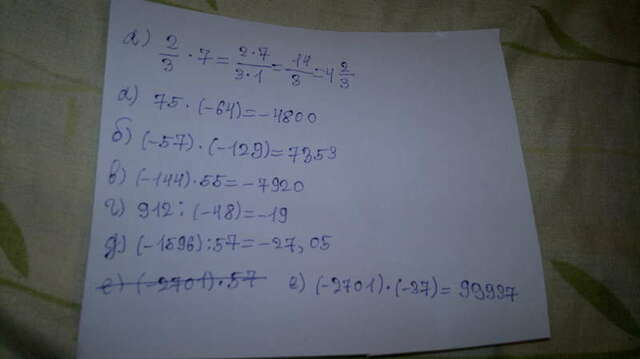 а) 2/3 · 7 = 2·7/3·1 = 14/3 = 4 2/3
а) 75 · (-64) = -4800
б) (-57) · (-129) = 7353
в) (-144) · 55 = -7920
г) 912 : (-48) = -19
д) (-1596) : 57 = -27,05
е) (-2701) · 57 е) (-2701) · (-37) = 99937